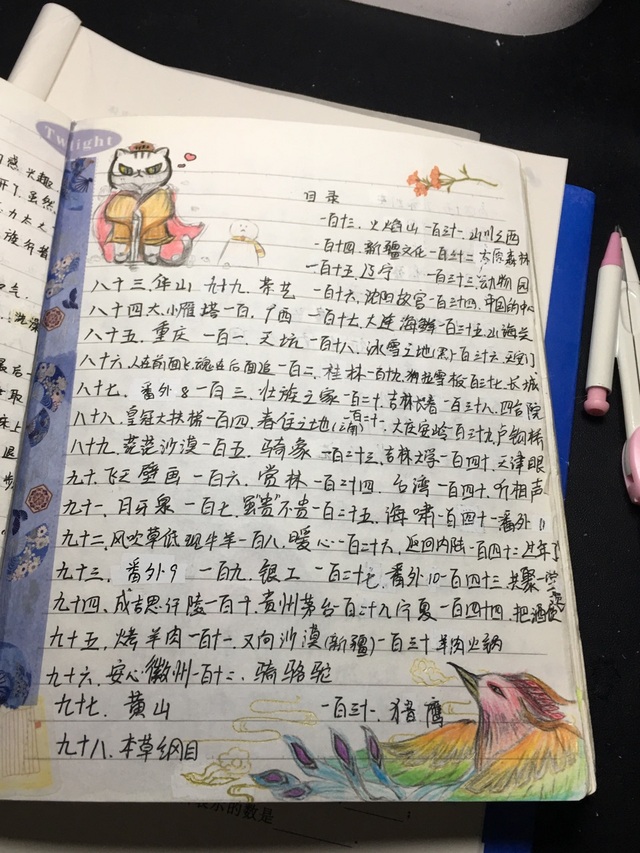 Twilight
目录
一百十三、火焰山 一百三十一、山川之西
一百十四、新疆文化 一百三十二、木原森林
一百十五、辽宁 一百三十三、动物园
八十三、华山 九十九、茶艺 一百十六、沈阳故宫 一百三十四、中国的中心
八十四、大小雁塔 一百、广西 一百十七、大连海鲜 一百三十五、山海关
八十五、重庆 一百一、天坑 一百十八、冰雪之地(黑) 一百三十六、天安门
八十六、人在前面飞,魂在后面追 一百二、桂林 一百十九、狗拉雪板 一百三十七、长城
八十七、番外8 一百三、壮族之家 一百二十、吉林长春 一百三十八、四合院
八十八、皇冠大扶梯 一百四、春住之地(云南) 一百二十一、大庆安岭 一百三十九、卢钩桥
八十九、茫茫沙漠 一百五、骑象 一百二十三、吉林大学 一百四十、天津眼
九十、飞天壁画 一百六、赏林 一百二十四、台湾 一百四十、听相声
九十一、月牙泉 一百七、虽“贵”不贵 一百二十五、海啸 一百四十一、番外11
九十二、风吹草低现牛羊 一百八、暖心 一百二十六、返回内陆 一百四十二、过年了
九十三、番外9 一百九、银工 一百二十七、番外10 一百四十三、共聚一堂
九十四、成吉思汗陵 一百十、贵州茅台 一百二十九、宁夏 一百四十四、把酒
九十五、烤羊肉 一百十一、又向沙漠(新疆) 一百三十、羊肉火锅
九十六、安心徽州 一百十二、骑骆驼
九十七、黄山 一百三十一、猎鹰
九十八、本草纲目
的数是